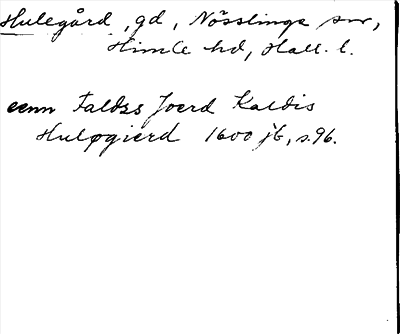 Hulegård, gd, Nösslinge sn,
Himle hd, Hall. l.
eenn Faldss Joerd Kaldis
Huløgierd 1600 jb, s. 96.